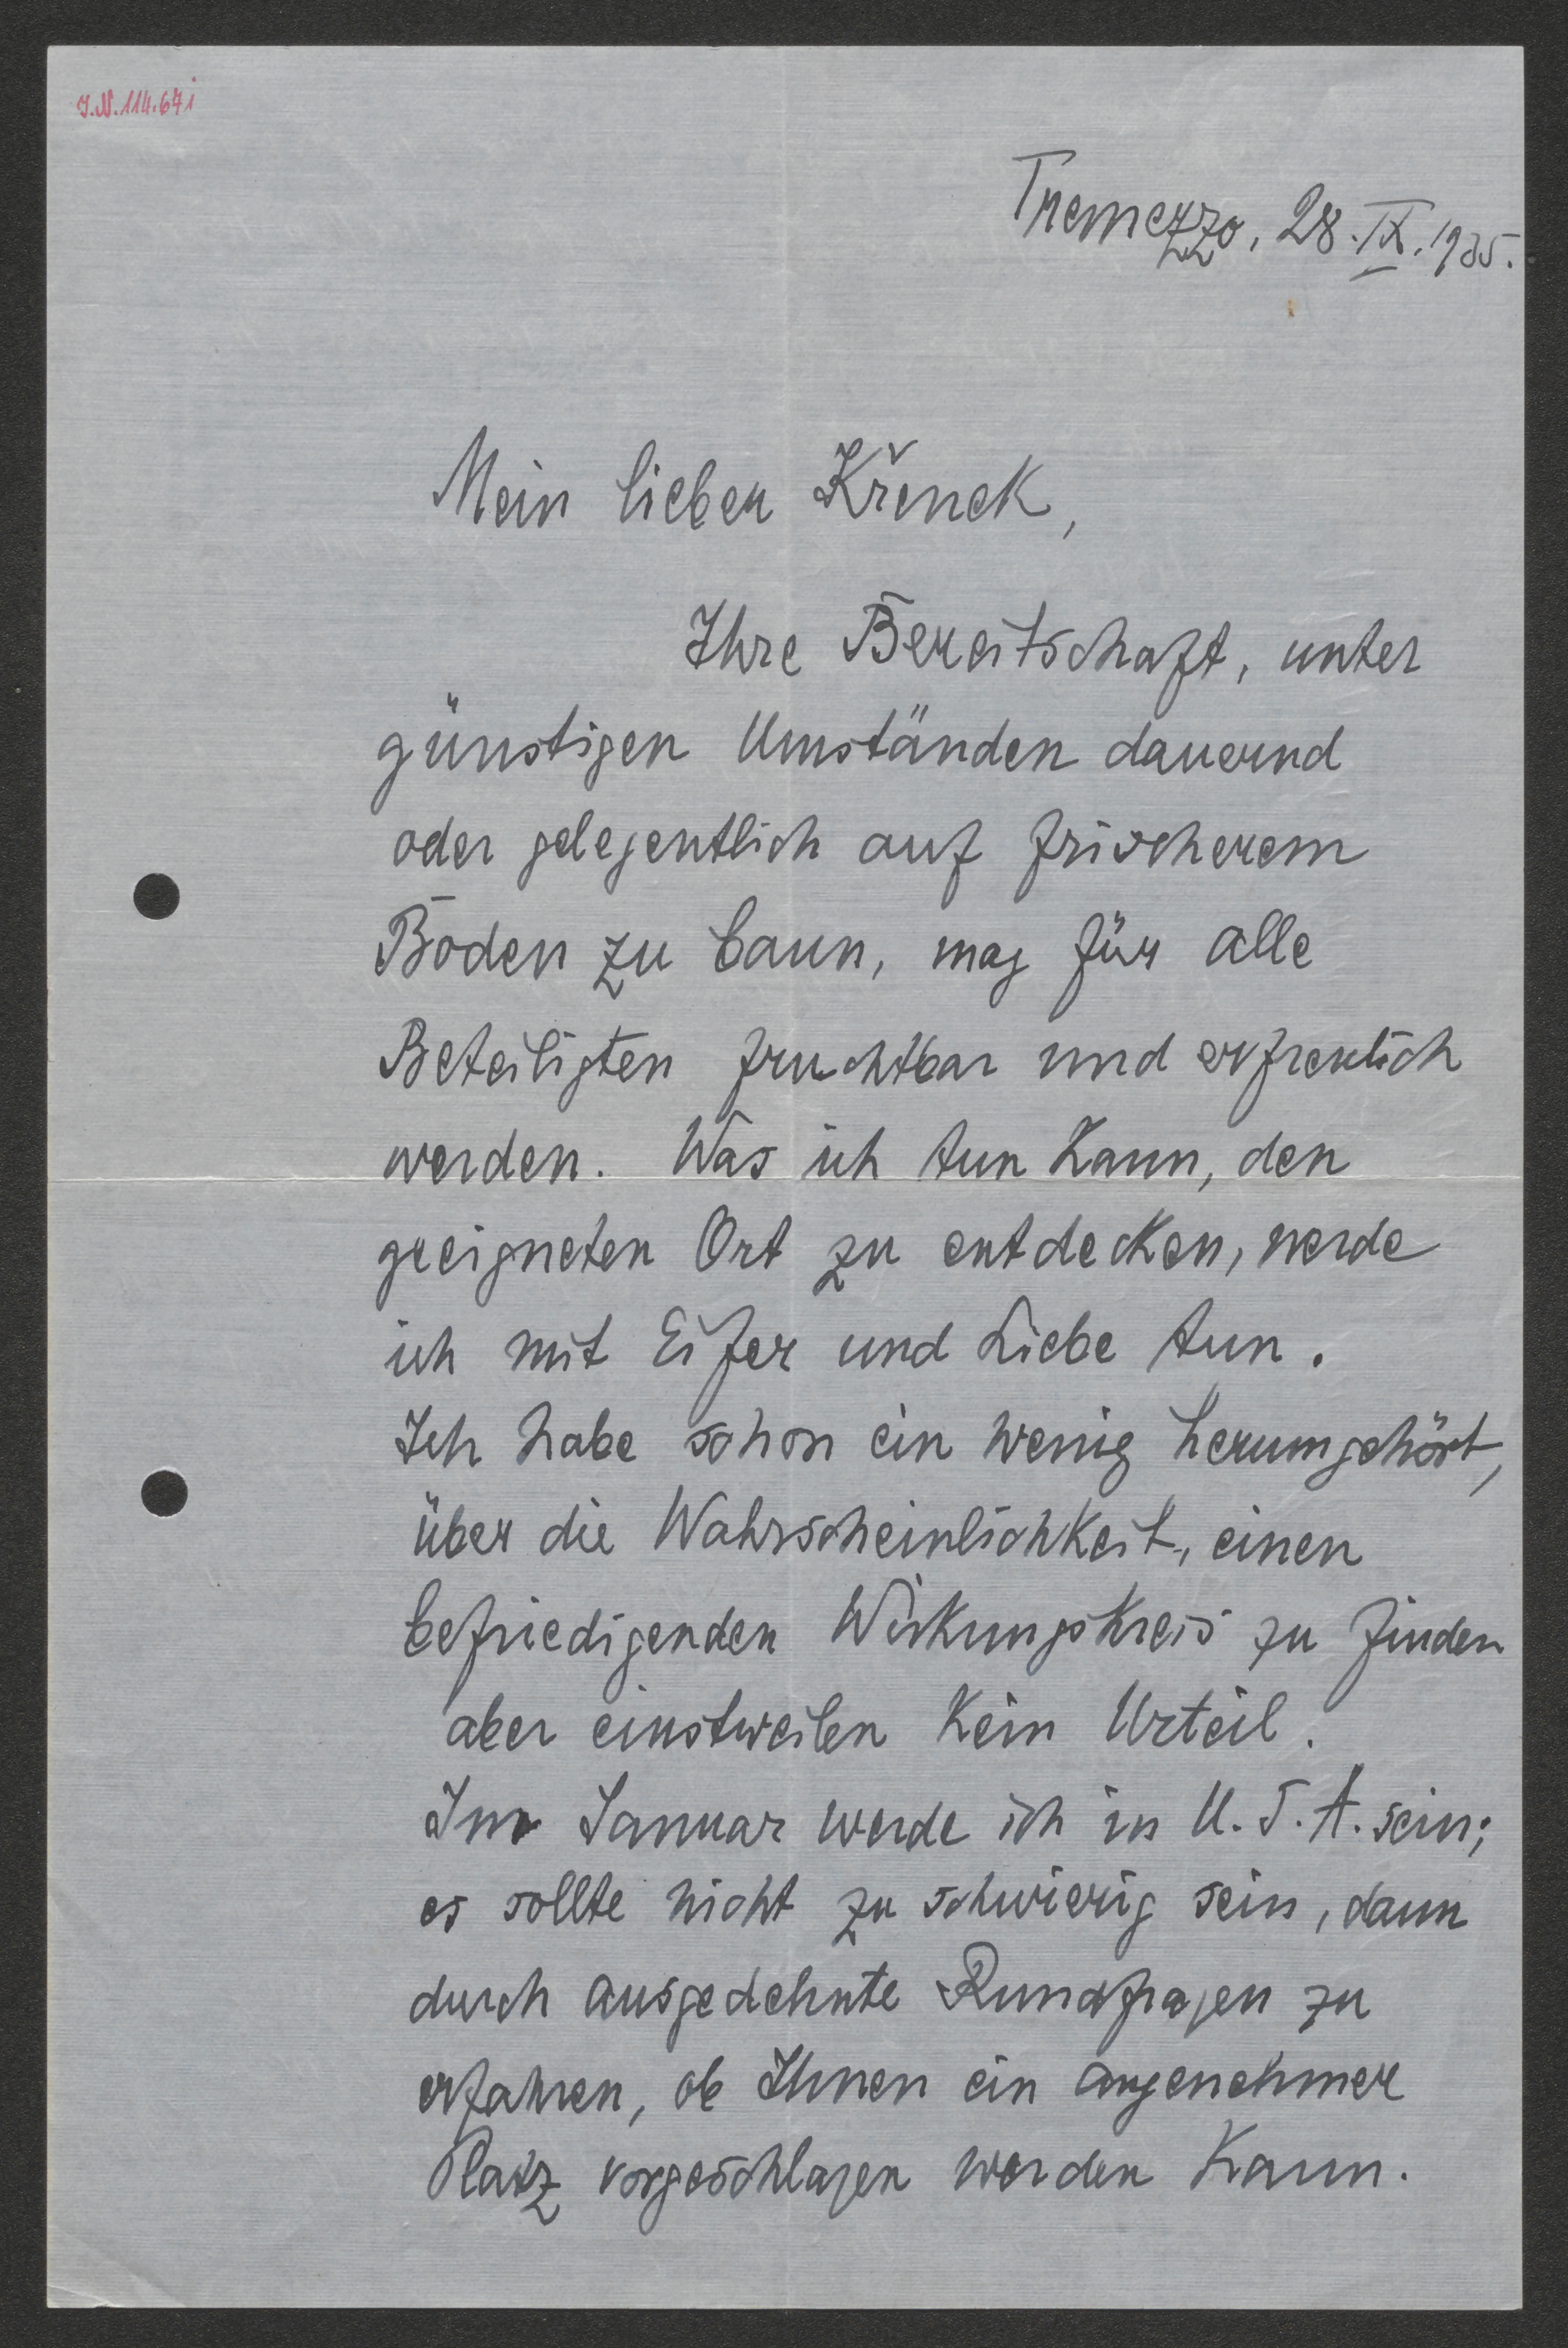 I.N. 114.671
Tremezzo, 28.IX.1935.
Mein lieber Křenek,
Ihre Bereitschaft, unter
günstigen Umständen dauernd
oder gelegentlich auf frischerem
Boden zu baun, mag für alle
Beteiligten fruchtbar und erfreulich
werden. Was ich tun kann, den
geeigneten Ort zu entdecken, werde
ich mit Eifer und Liebe tun.
Ich habe schon ein wenig herumgehört,
über die Wahrscheinlichkeit, einen
befriedigenden Wirkungskreis zu finden
aber einstweilen kein Urteil.
Im Januar werde ich in U.S.A. sein;
es sollte nicht zu schwierig sein, dann
durch ausgedehnte Rundfragen zu
erfahren, ob Ihnen ein angenehmer
Platz vorgeschlagen werden kann.